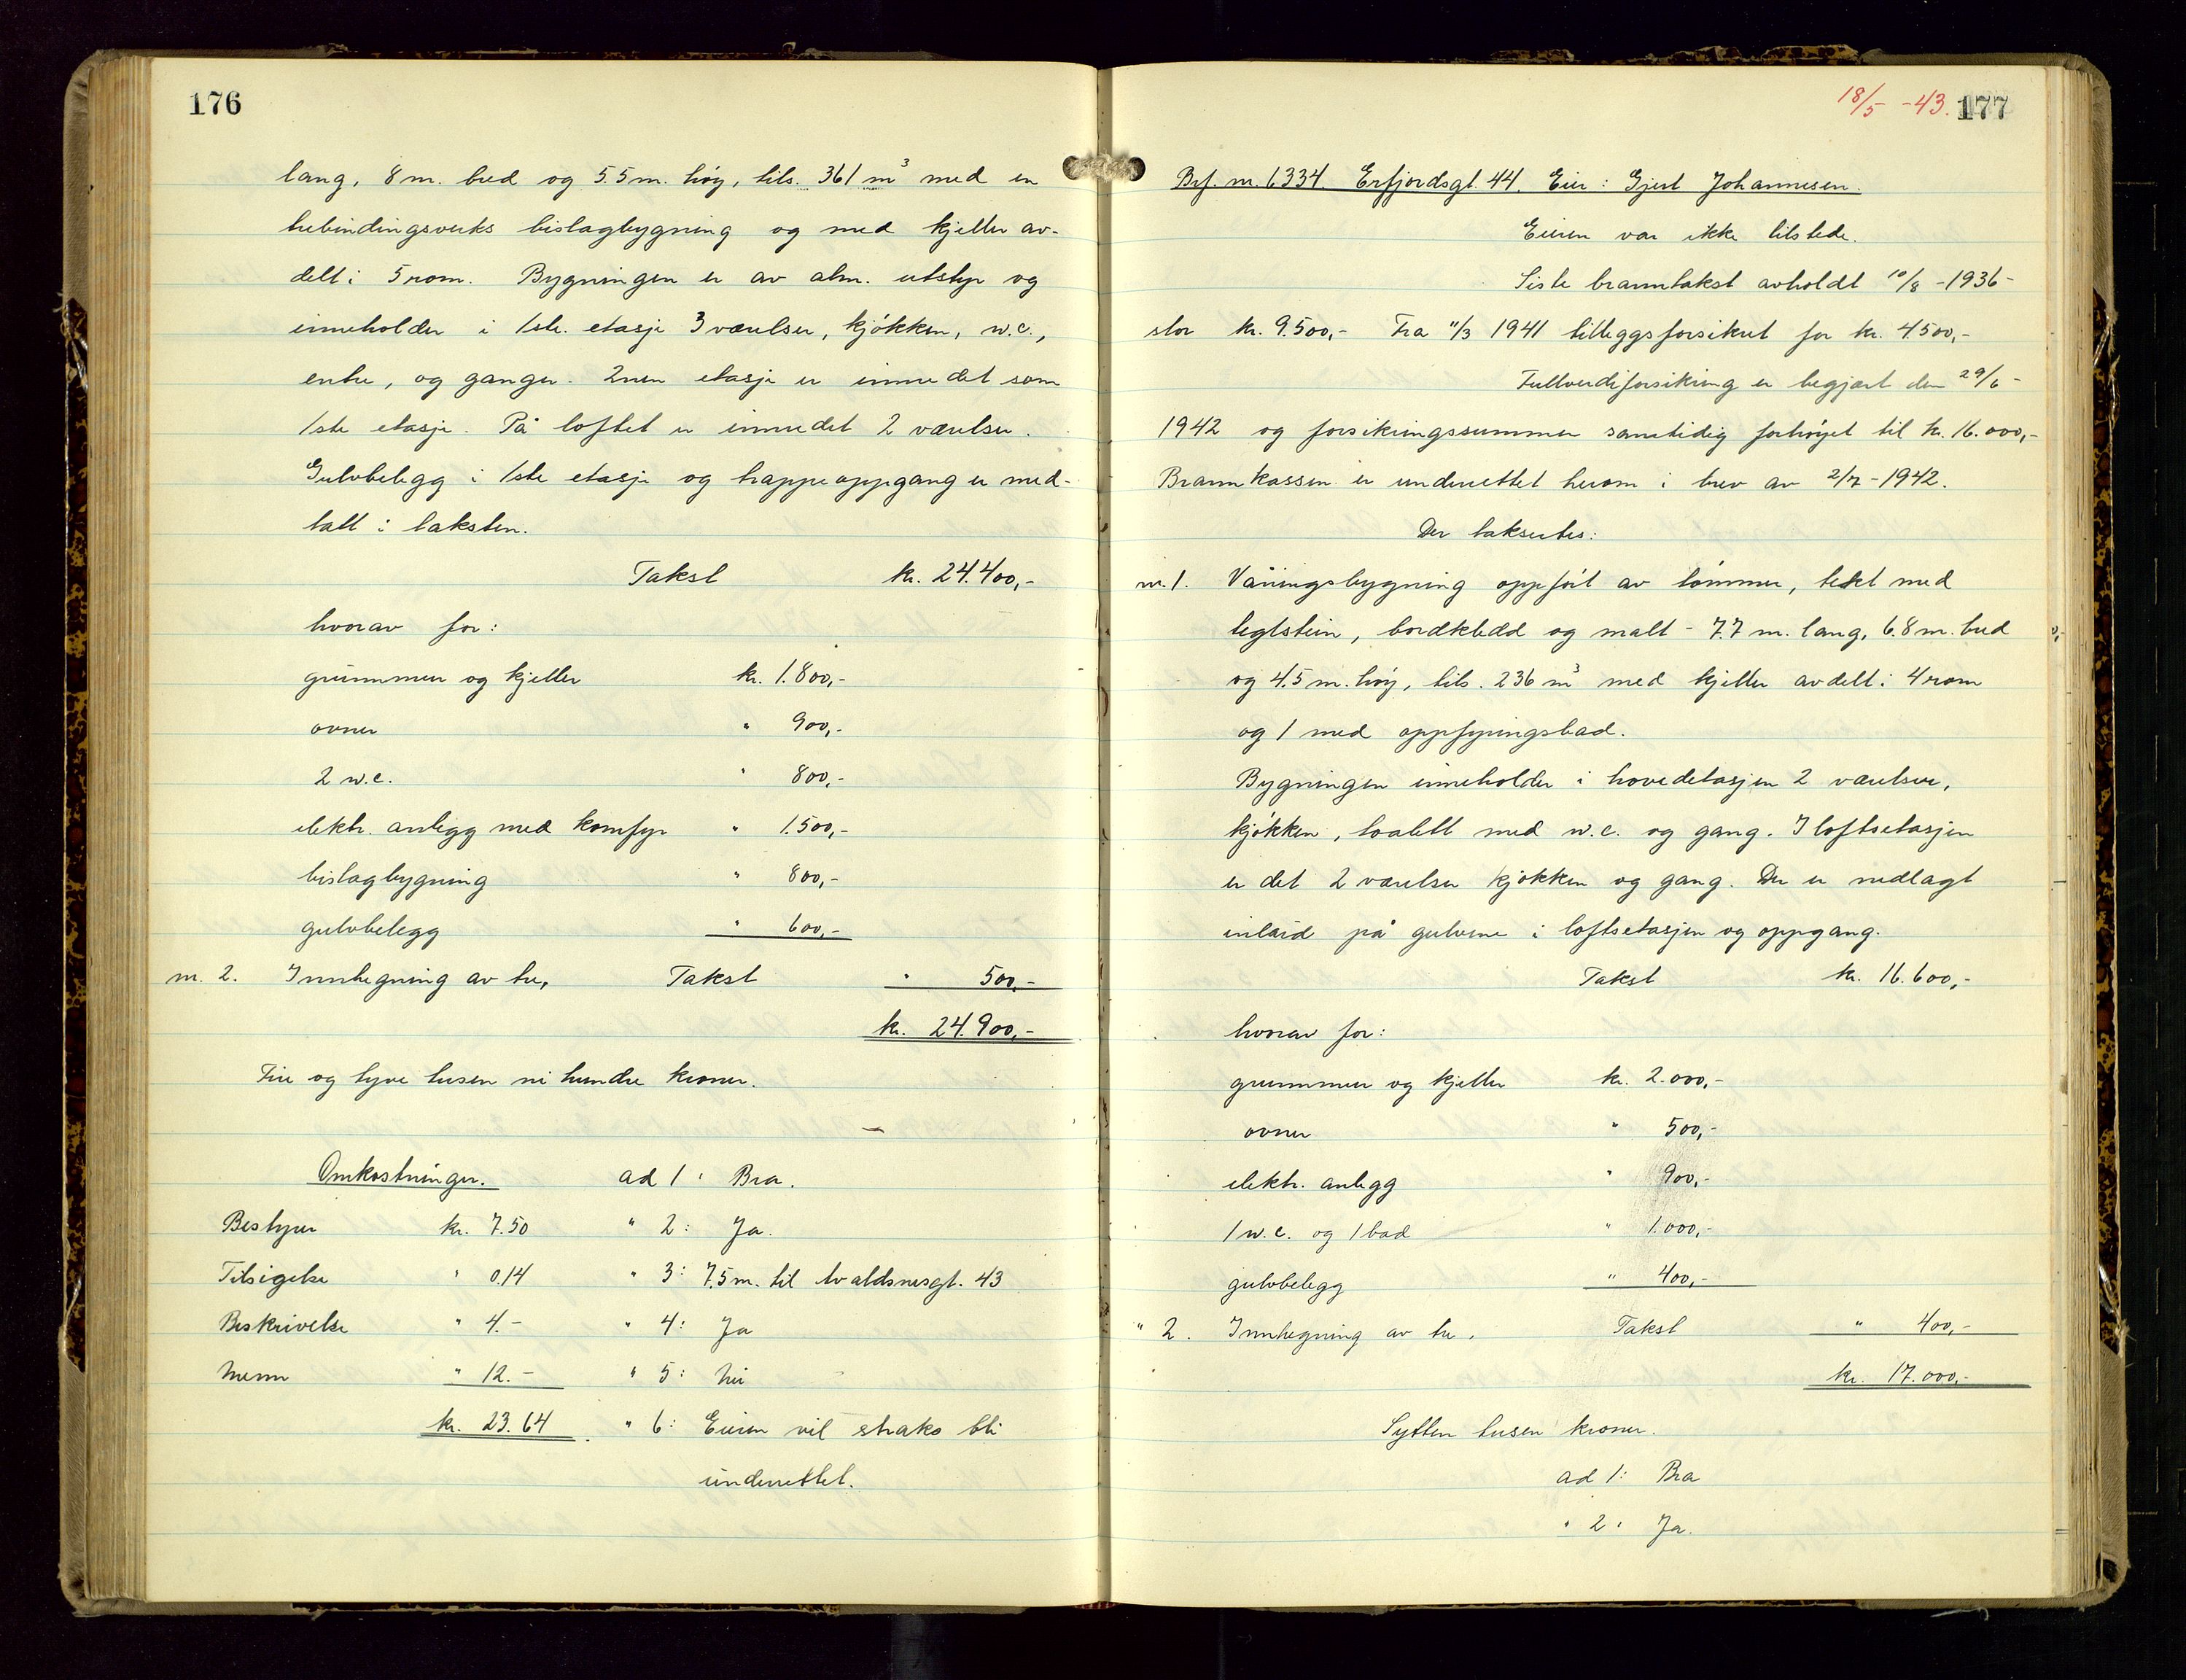 176
lang, 8 m. bred og 5.5 m. høy, tils. 361 m³ med en
trebindingsverks bislagbygning og med kjeller av-
delt i 5 rom. Bygningen er av alm. utstyr og
inneholder i 1ste. etasje 3 værelser, kjøkken, w.c.,
entre, og ganger. 2nen etasje er innredet som
1ste etasje. På loftet er innredet 2 værelser.
Gulvbelegg i 1ste etasje og trappeoppgang er med-
tatt i taksten.
Takst kr. 24.400,-
hvorav for:
grunnmur og kjeller kr. 1.800,-
ovner " 900,-
2 w.c. " 800,-
elektr. anlegg med komfyr " 1.500,-
bislagbygning " 800,-
gulvbelegg " 600,-
nr. 2. Innhegning av tre, Takst " 500,-
kr. 24.900,-
Fire og tyve tusen ni hundre kroner.
Omkostninger. ad 1: Bra.
Bestyrer kr. 7.50 " 2: Ja.
Tilsigelse " 0.14 " 3: 7.5 m. til Avaldsnesgt. 43
Beskrivelse " 4.- " 4: Ja
Menn " 12.- " 5: Nei
kr. 23.64 " 6: Eieren vil straks bli
underrettet.
18/5 -43. 177
Brf. nr. 1334. Erfjordsgt. 44. Eier: Gjert Johannesen.
Eieren var ikke tilstede.
Siste branntakst avholdt 10/8 -1936-
stor kr. 9.500,- Fra 11/3 1941 tilleggsforsikret for kr. 4500,-
Fullverdiforsikring er begjært den 29/6-
1942 og forsikringssummen samtidig forhøyet til kr. 16.000,-
Brannkassen er underrettet herom i brev av 2/7-1942.
Der taksertes:
nr. 1. Våningsbygning oppført av tømmer, tekt med
teglstein, bordkledd og malt - 7.7 m. lang, 6.8 m. bred
og 4.5 m. høy, tils. 236 m³ med kjeller avdelt i 4 rom
og 1 med oppfyringsbad.
Bygningen inneholder i hovedetasjen 2 værelser,
kjøkken, toalett med w.c. og gang. I loftsetasjen
er det 2 værelser kjøkken og gang. Der er nedlagt
inlaid på gulvene i loftsetasjen og oppgang.
Takst kr. 16.600,-
hvorav for:
grunnmur og kjeller kr. 2.000,-
ovner " 500,-
elektr. anlegg " 900,-
1 w.c. og 1 bad " 1.000,-
gulvbelegg " 400,-
" 2. Innhegning av tre. Takst " 400,-
kr. 17.000,-
Sytten tusen kroner.
ad 1: Bra
" 2: Ja.